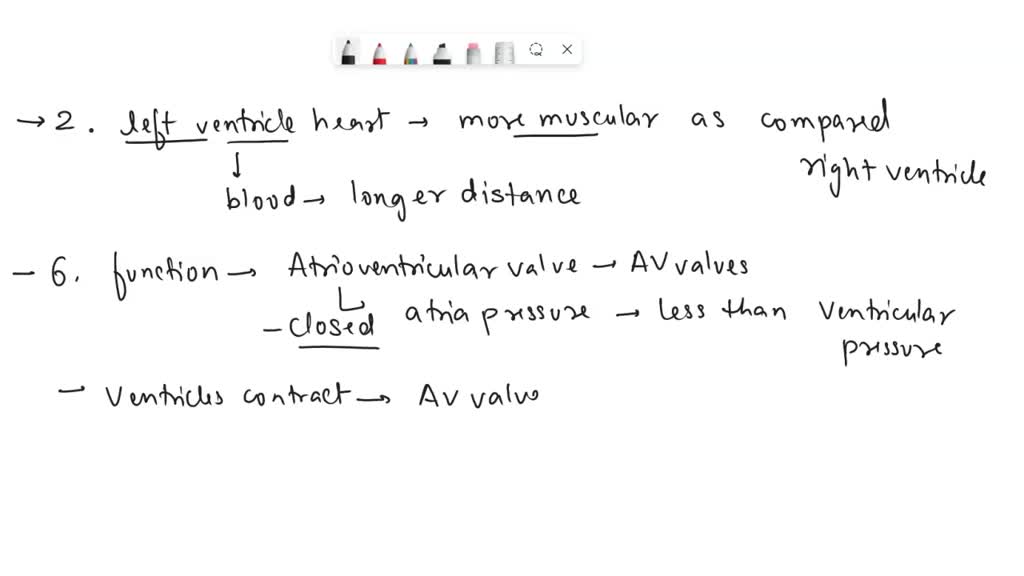 → 2. left ventricle heart → more muscular as compared
right ventricle
↓
blood → longer distance
- 6. function → Atrioventricular valve → AV valves
- closed atria pressure → less than ventricular
pressure
- Ventricles contract → AV valve